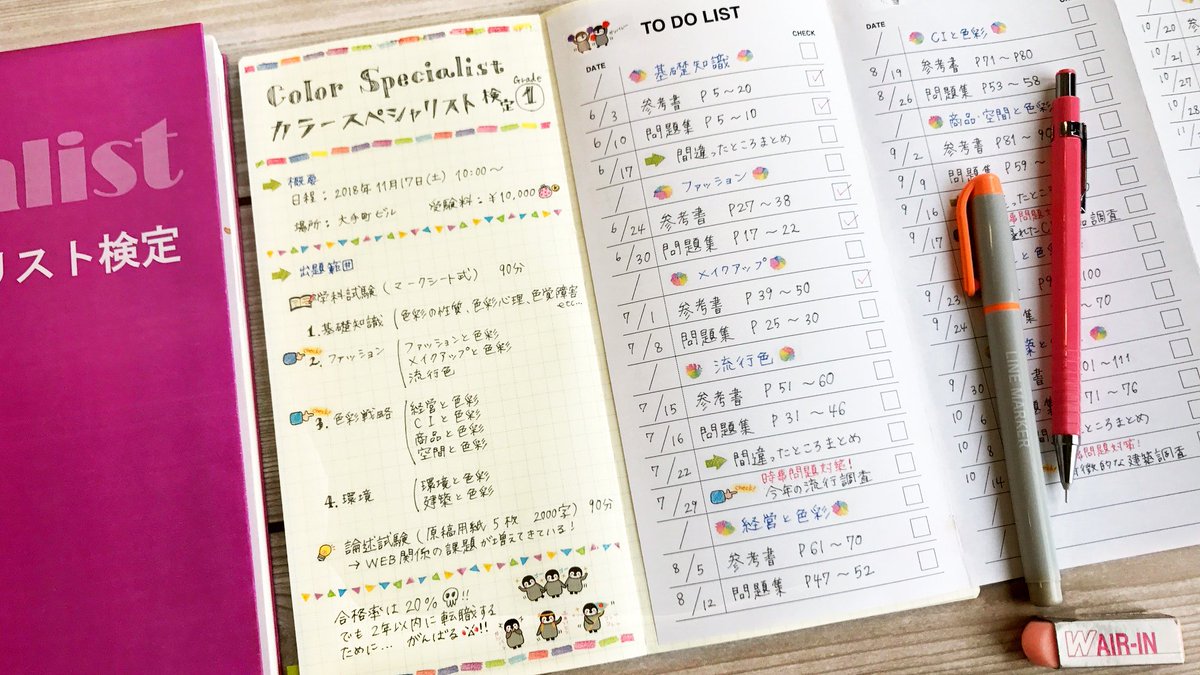 alist
リスト検定
Color Specialist
Grade 1
カラースペシャリスト検定
概要
日程：2018年11月17日(土) 10:00～
場所：大手町ビル 受験料：¥10,000
出題範囲
学科試験(マークシート式) 90分
1.基礎知識(色彩の性質、色彩心理、色覚障害 etc...
check!
2.ファッション
ファッションと色彩
メイクアップと色彩
流行色
check!
3.色彩戦略
経営と色彩
CIと色彩
商品と色彩
空間と色彩
4.環境
環境と色彩
建築と色彩
論述試験(原稿用紙5枚 2000字) 90分
→WEB関係の課題が増えてきている!
合格率は20%!!
でも2年以内に転職する
ために… がんばる!!
TO DO LIST
DATE CHECK
/ 基礎知識
6/3 参考書 P5～20
6/10 問題集 P5～10
6/17 間違ったところまとめ
/ ファッション
6/24 参考書 P27～38
6/30 問題集 P17～22
/ メイクアップ
7/1 参考書 P39～50
7/8 問題集 P25～30
/ 流行色
7/15 参考書 P51～60
7/16 問題集 P31～46
7/22 間違ったところまとめ
時事問題対策!
7/29 check! 今年の流行調査
/ 経営と色彩
8/5 参考書 P61～70
8/12 問題集 P47～52
DATE CHECK
/ CIと色彩
8/19 参考書 P71～P80
8/26 問題集 P53～58
/ 商品・空間と色彩
9/2 参考書 P81～90
9/9 問題集 P59～
9/16 ったところ
9/17 調査
9/23 100
9/24 70
/ と色彩
9/30 01～111
10/6 71～76
10/8 たところまとめ
時事問題対策!
10/14 徴的な建築調査
10/20
10/21
10/27
10/28
LINE MARKER
AIR-IN